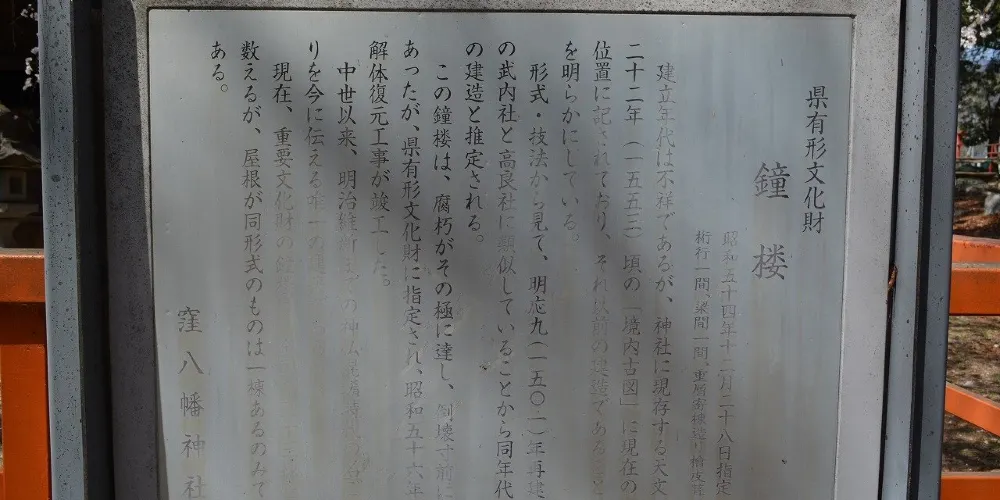 県有形文化財
鐘楼
昭和五十四年十二月二十八日指定
桁行一間、梁間一間、一重
建立年代は不祥であるが、神社に現存する天文
二十二年（一五五三）頃の「境内古図」に現在の
位置に記されており、それ以前の建造である
を明らかにしている。
形式・技法から見て、明応九（一五〇〇）年再建
の武内社と高良社に類似していることから同年代
の建造と推定される。
この鐘楼は、腐朽がその極に達し、倒壊寸前に
あったが、県有形文化財に指定され、昭和五十六年
解体復元工事が竣工した。
中世以来、明治維新
りを今に伝える唯一の
現在、重要文化財の
数えるが、屋根が同形式のものは一棟あるのみで
ある。
窪八幡神社